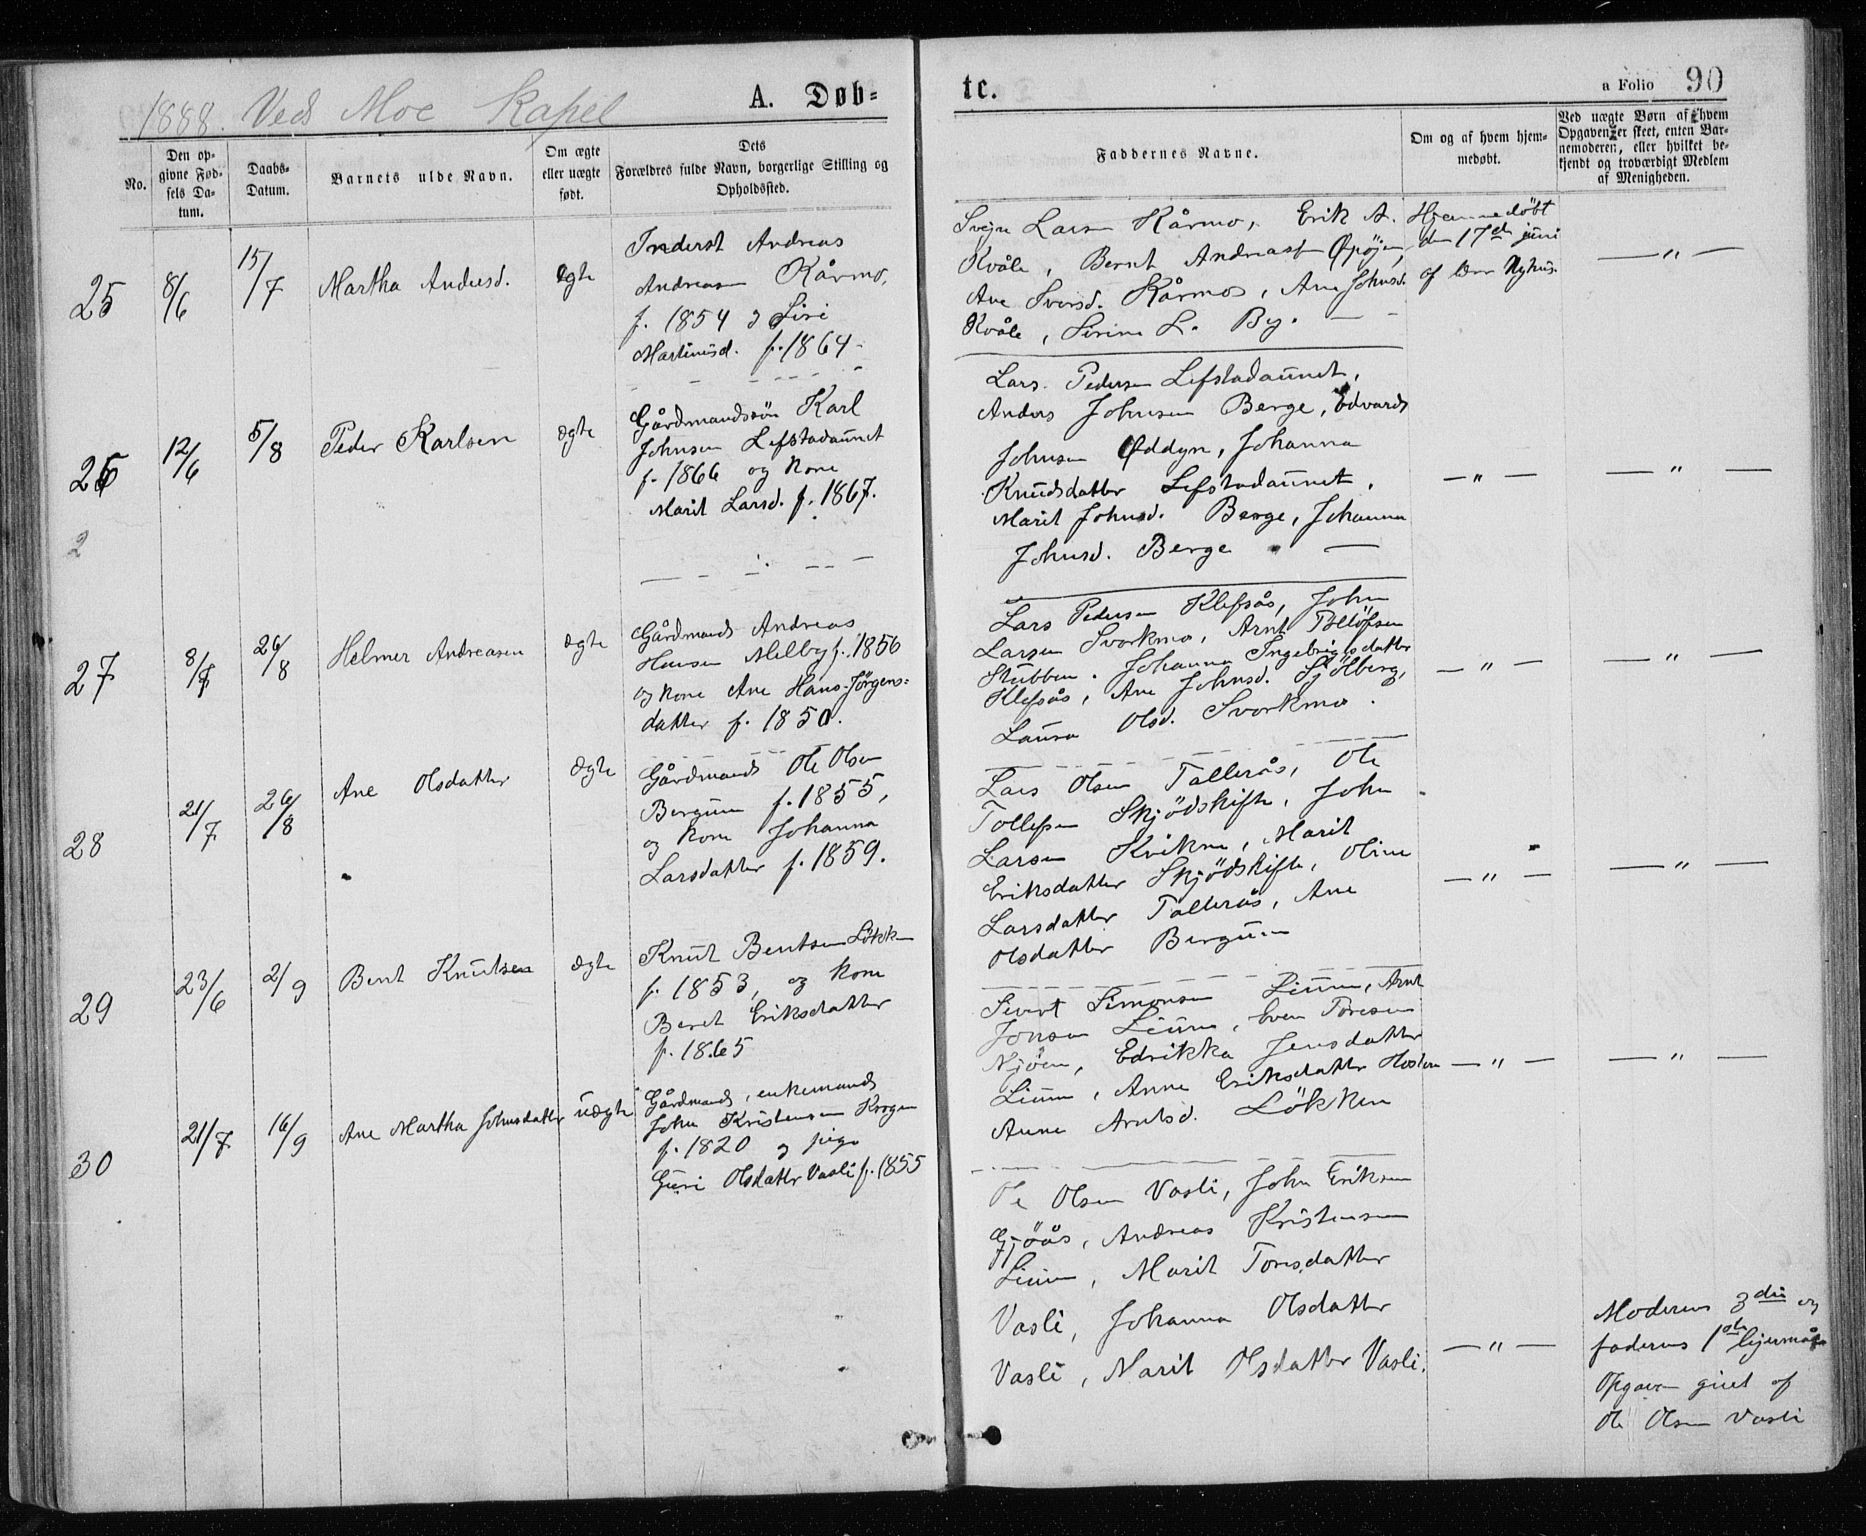 1888. Ved Moe Kapel
A. Døb=
te.
a Folio 90
No.
Den op-
givne Fød-
sels Da-
tum.
Daabs-
Datum.
Barnets ulde Navn.
Om ægte
eller uægte
født.
Dets
Forældres fulde Navn, borgerlige Stilling og
Opholdssted.
Faddernes Navne.
Om og af hvem hjem-
medøbt.
Ved uægte Børn af hvem
Opgaven er skeet, enten Bar-
nemoderen, eller hvilket be-
kjendt og troværdigt Medlem
af Menigheden.
25
8/6
15/7
Martha Andersd.
ægte
Inderst Andreas
Andreasen Kårmo,
f. 1854 og Siri
Martinusd. f. 1864 -
Svejn Larsen Kårmo, Erik A.
Kvåle, Bernt Andreas
Ane Sversd. Kårmo, Ane Johnsd.
Kvåle, Serine L. By. — —
Hjemmedöbt
den 17de juni
af Nyhus.
— " —
26
12/6
5/8
Peder Karlsen
ægte
Gårdmandssön Karl
Johnsen Lefstadaunet
f. 1866 og Kone
Marit Larsd. f. 1867.
Lars Pedersen Lefstadaunet,
Anders Johnsen Berge, Edvard
Johnsen Øddyn, Johanna
Knudsdatter Lefstadaunet,
Marit Johnsd. Berge, Johanna
Johnsd. Berge —
— " —
— " —
2
27
8/7
26/8
Helmer Andreasen
ægte
Gårdmand Andreas
Hansen Melby f. 1856
og Kone Ane Hans-Jörgens=
datter f. 1850.
Lars Pedersen Klefsås, John
Larsen Svorkmo, Arnt Tollöfsen
Stubben. Johanna Ingebrigtsdatter
Klefsås, Ane Johnsd. Sjölberg,
Laura Olsd. Svorkmo.
— " —
— " —
28
21/7
26/8
Ane Olsdatter
ægte
Gårdmand Ole Olsen
Bergum f. 1855,
og Kone Johanna
Larsdatter f. 1859.
Lars Olsen Tallerås, Ole
Tollefsen Skjödskift, John
Larsen Kvikne, Marit
Eriksdatter Skjödskift, Oline
Larsdatter Tallerås, Ane
Olsdatter Bergum
— " —
— " —
29
23/6
2/9
Bent Knutsen
ægte
Knut Bentsen Lökken
f. 1853, og Kone
Beret Eriksdatter
f. 1865
Sivert Simonsen Lium, Arnt
Jonsen Lium, Even Toresen
Njöen, Edrikka Jensdatter
Lium, Anne Eriksdatter
Anne Arntsd. Lökken
— " —
— " —
30
21/7
16/9
Ane Martha Johnsdatter
uægte
Gårdmand, enkemand
John Kristensen Krogen
f. 1820 og pige
Guri Olsdatter Vasli f. 1855
Ole Olsen Vasli, John Eriksen
Gjöås, Andreas Kristensen
Lium, Marit Toresdatter
Vasli, Johanna Olsdatter
Vasli, Marit Olsdatter Vasli.
— " —
Moderens 3die og
faderens 1ste lejermål
Opgaven givet af
Ole Olsen Vasli